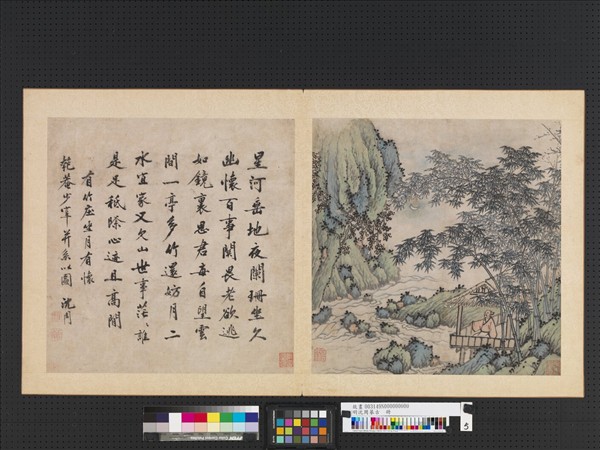 星河垂地夜闌珊坐久
幽懷百事関畏老欲逃
如鏡裏思君每自望雲
間一亭多竹還妨月二
水宜家又欠山世事茫〻誰
是足秪除心迹且高閒
有竹庄坐月有懷
乾菴少宰并系以圖 沈周
故畫
5